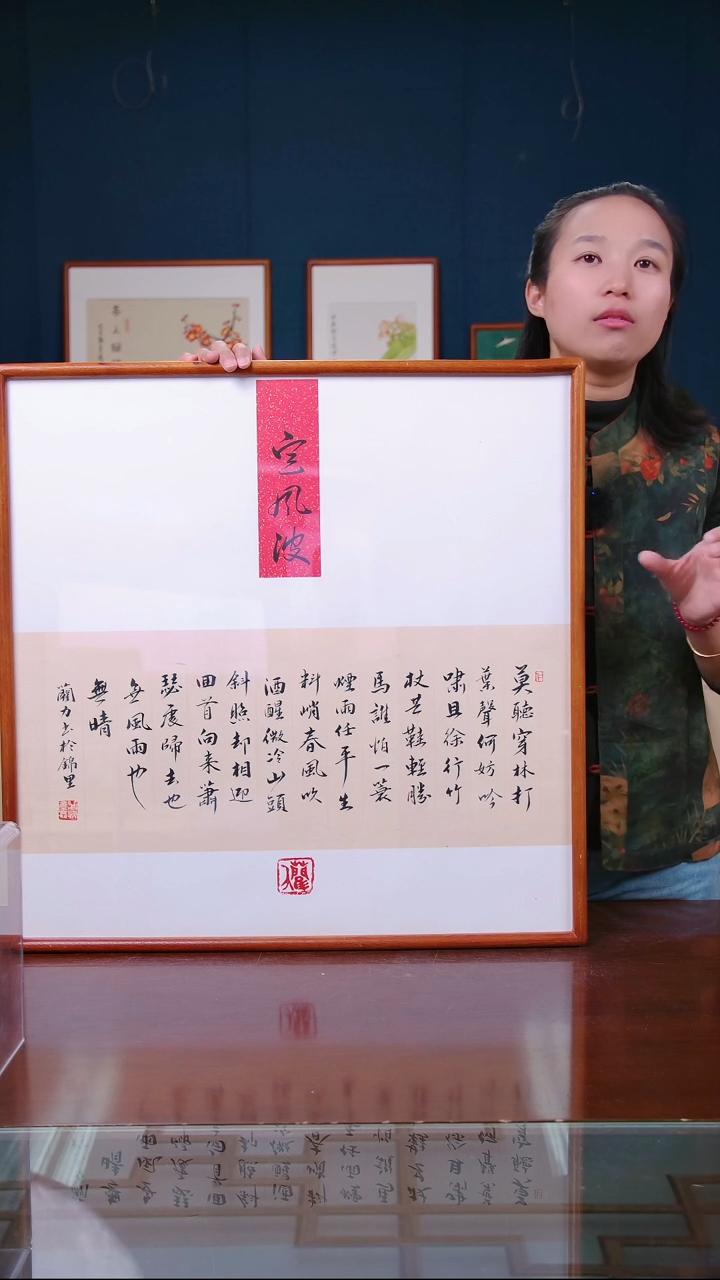 定風波
莫聽穿林打
葉聲何妨吟
嘯且徐行竹
杖芒鞋輕勝
馬誰怕一蓑
煙雨任平生
料峭春風吹
酒醒微冷山頭
斜照却相迎
回首向来蕭
瑟處歸去也
無風雨也
無晴
蘭力書於錦里